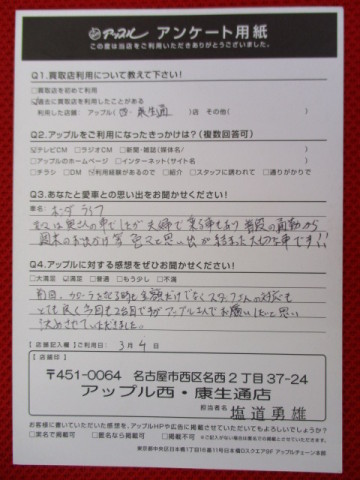 アップル アンケート用紙
この度は当店をご利用いただきありがとうございました。
Q1.買取店利用について教えて下さい!
□買取店を初めて利用
☑過去に買取店を利用したことがある
利用した店舗:アップル( 西・康生通 )店 その他( )
Q2.アップルをご利用になったきっかけは?(複数回答可)
☑テレビCM □ラジオCM □新聞・雑誌(媒体名/ )
□アップルのホームページ □インターネット(サイト名 )
□チラシ □DM ☑利用経験があるので □紹介 □スタッフに誘われて □通りがかりで
Q3.あなたと愛車との思い出をお聞かせください!
車名: ホンダ ライフ
夫婦で乗る事もあり 普段の通勤から
週末のお出かけ等 色々と思い出が詰まった大切な車です!!
Q4.アップルに対する感想をぜひお聞かせください!
□大満足 ☑満足 □普通 □もう少し □不満
前回、 金額だけでなくスタッフさんの対応も
とても良く今回も2台目ですがアップルさんでお願いしたいと思い
決めさせていただきました。
【店舗記入欄】ご利用日: 3月4日
【店舗印】
〒451-0064 名古屋市西区名西2丁目37-24
アップル西・康生通店
担当者名 塩道勇雄
お客様に書いていただいた感想を、アップルHPや広告に掲載させていただいてもよろしいでしょうか?
□実名で掲載可 □匿名なら掲載可 □掲載不可
東京都中央区日本橋1丁目16番11号日本橋Dスクエア8F アップルチェーン本部